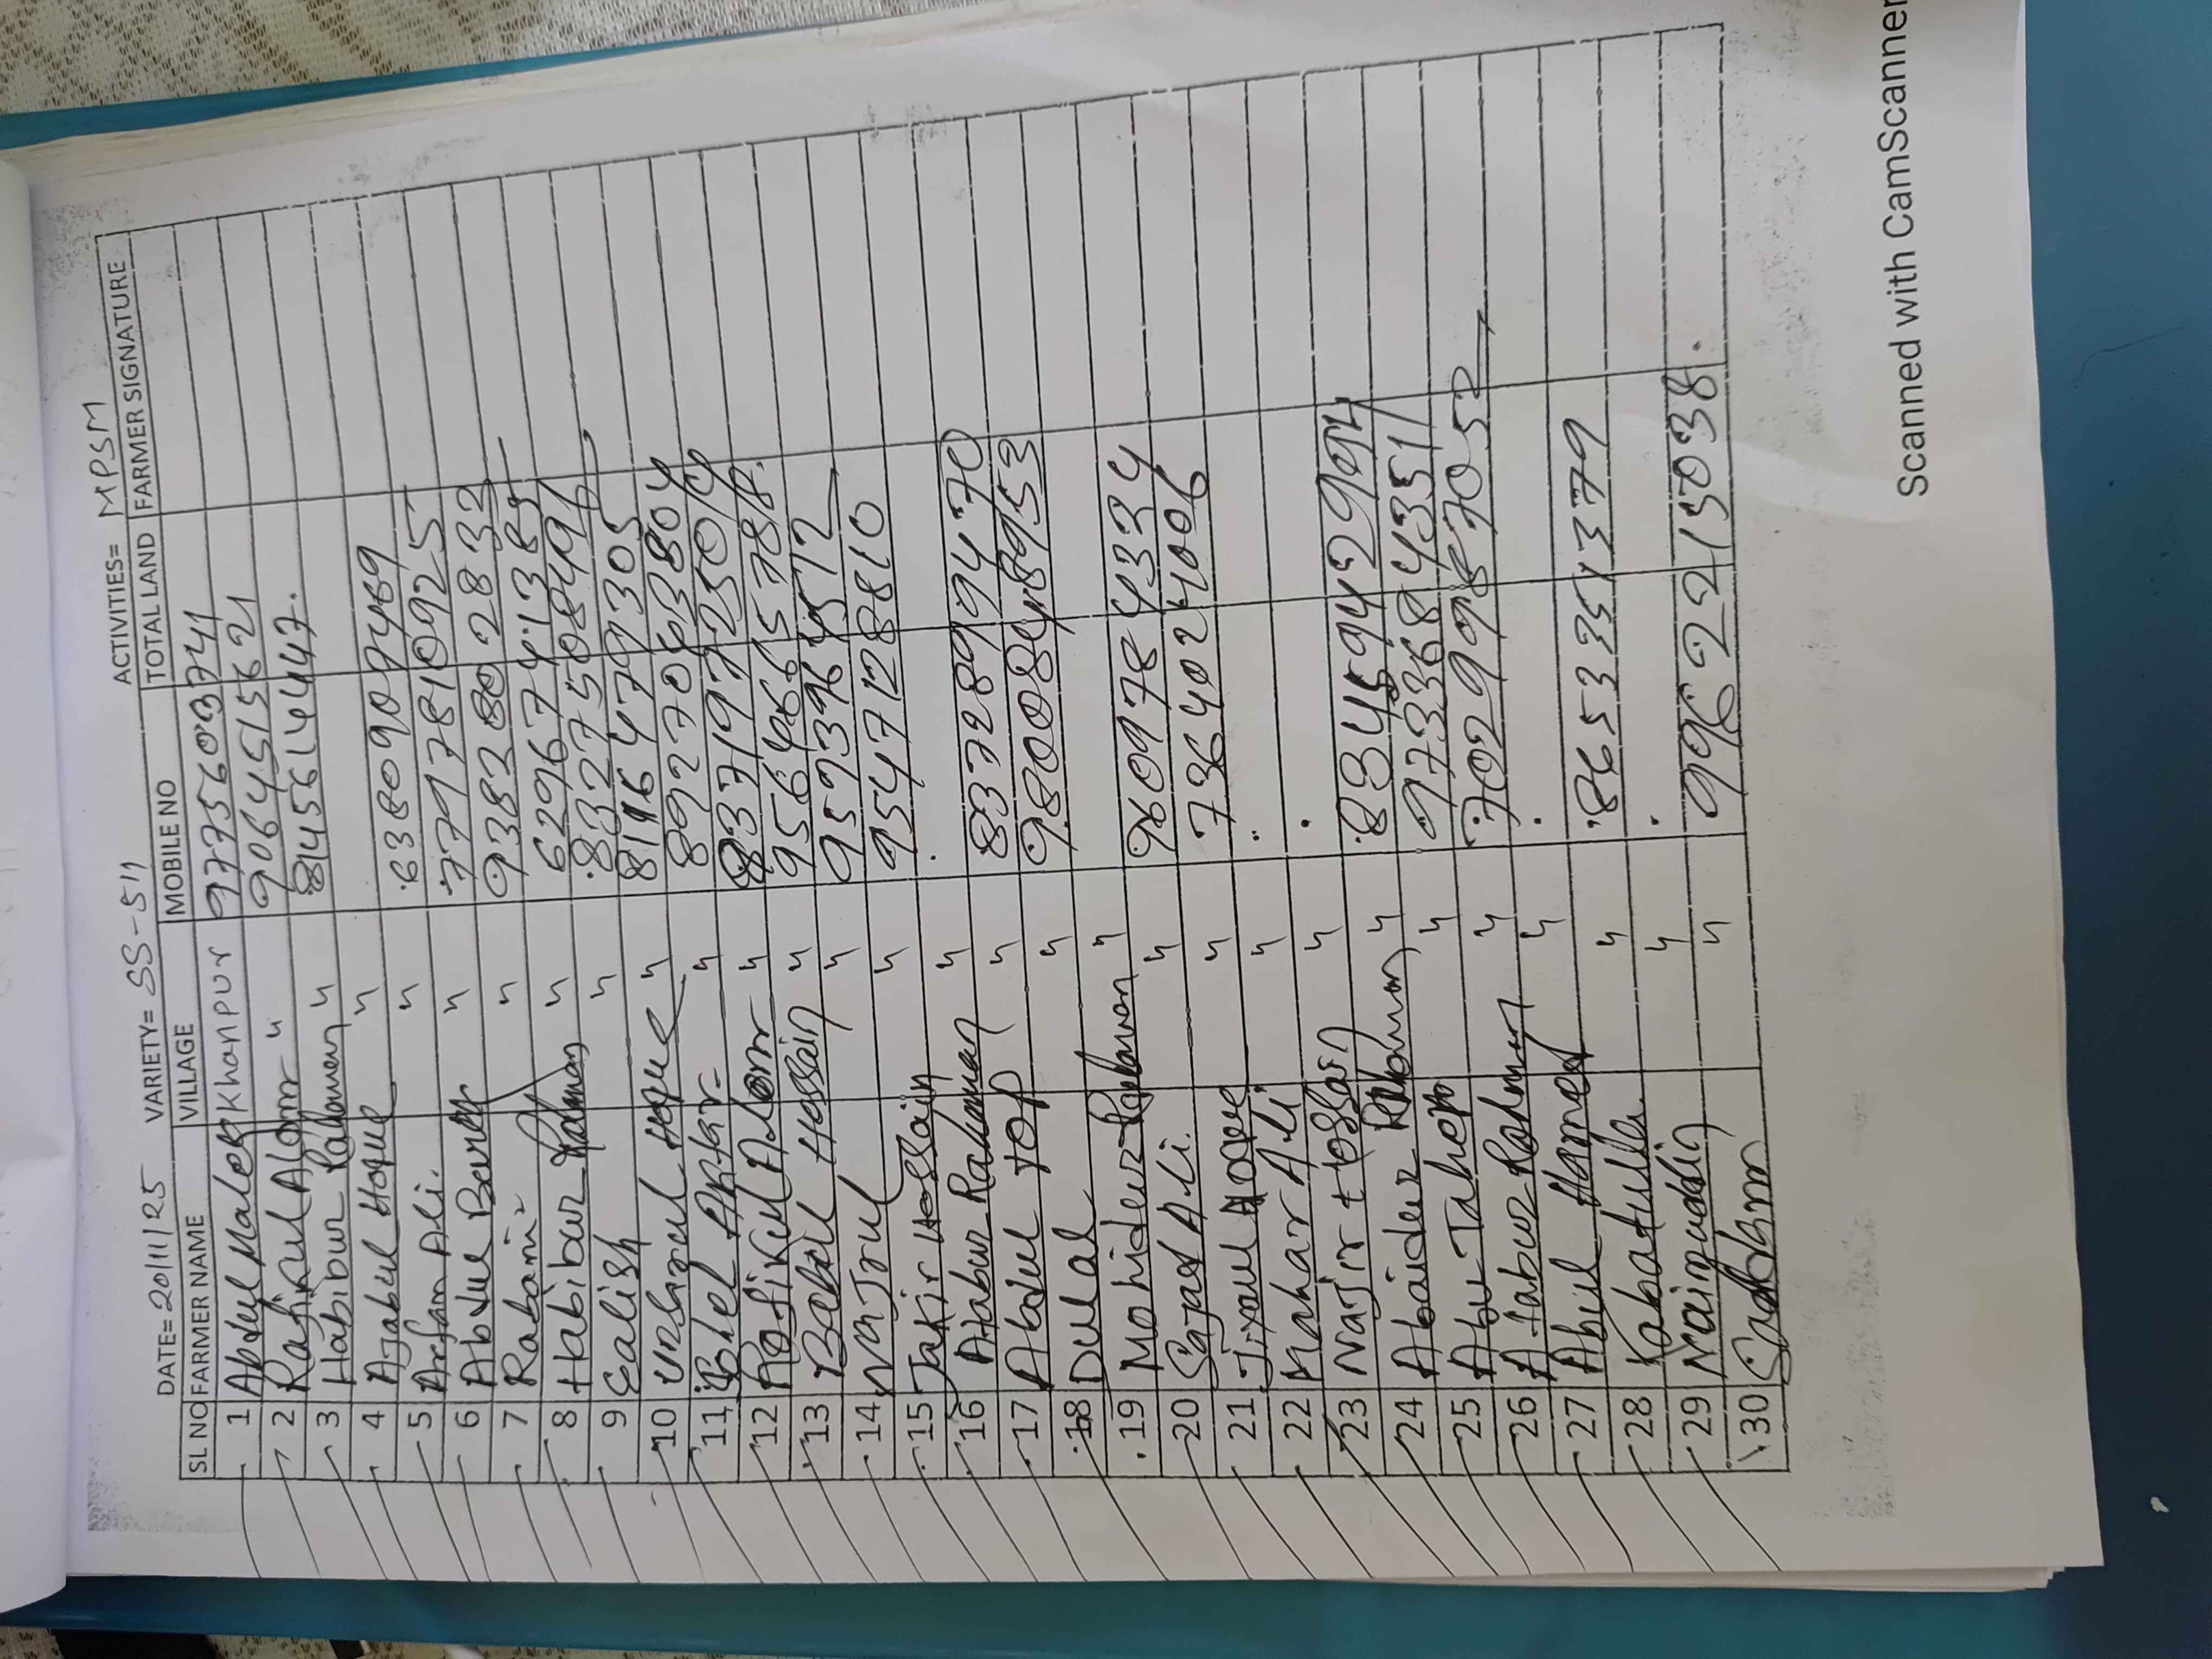 DATE= 20/11/25 VARIETY= SS-511 ACTIVITIES= MPSM
SL NO FARMER NAME VILLAGE MOBILE NO TOTAL LAND FARMER SIGNATURE
1 Abdul Malek Khanpur 9775603741
2 Rafikul Alom " 9064515621
3 Habibur Rahaman " 8145614447.
4 Ajabul Hoque "
5 Arfam Ali. " 6380907489
6 Abdul Barek " 7797810925
7 Rabani " 9382802832
8 Habibur Rahman " 6296741385
9 " 8327508496
10 Hoque " 8116479305
11 Aktar " 8927063804
12 Rofikul Alom " 8371972504
13 Belal Hossain " 9564665788.
14 Najrul " 9593964572
15 Jakir Hossain " 9547128810
16 Atabur Rahaman "
17 Abdul " 8372899470
18 Dulal " 9800848953
19 Mohidur Rahaman "
20 Sajad Ali. " 9609784334
21 Hoque " 7364024006
22 Mahar Ali "
23 Najir Hossain "
24 Abaidur Rahaman " 8345942994
25 Abu Taher " 9733684351
26 Atabur Rahman " 7029987052
27 Abul "
28 Kabatulla. " 8653351379
29 Naimuddin "
30 Saddam " 9962215038.
Scanned with CamScanner